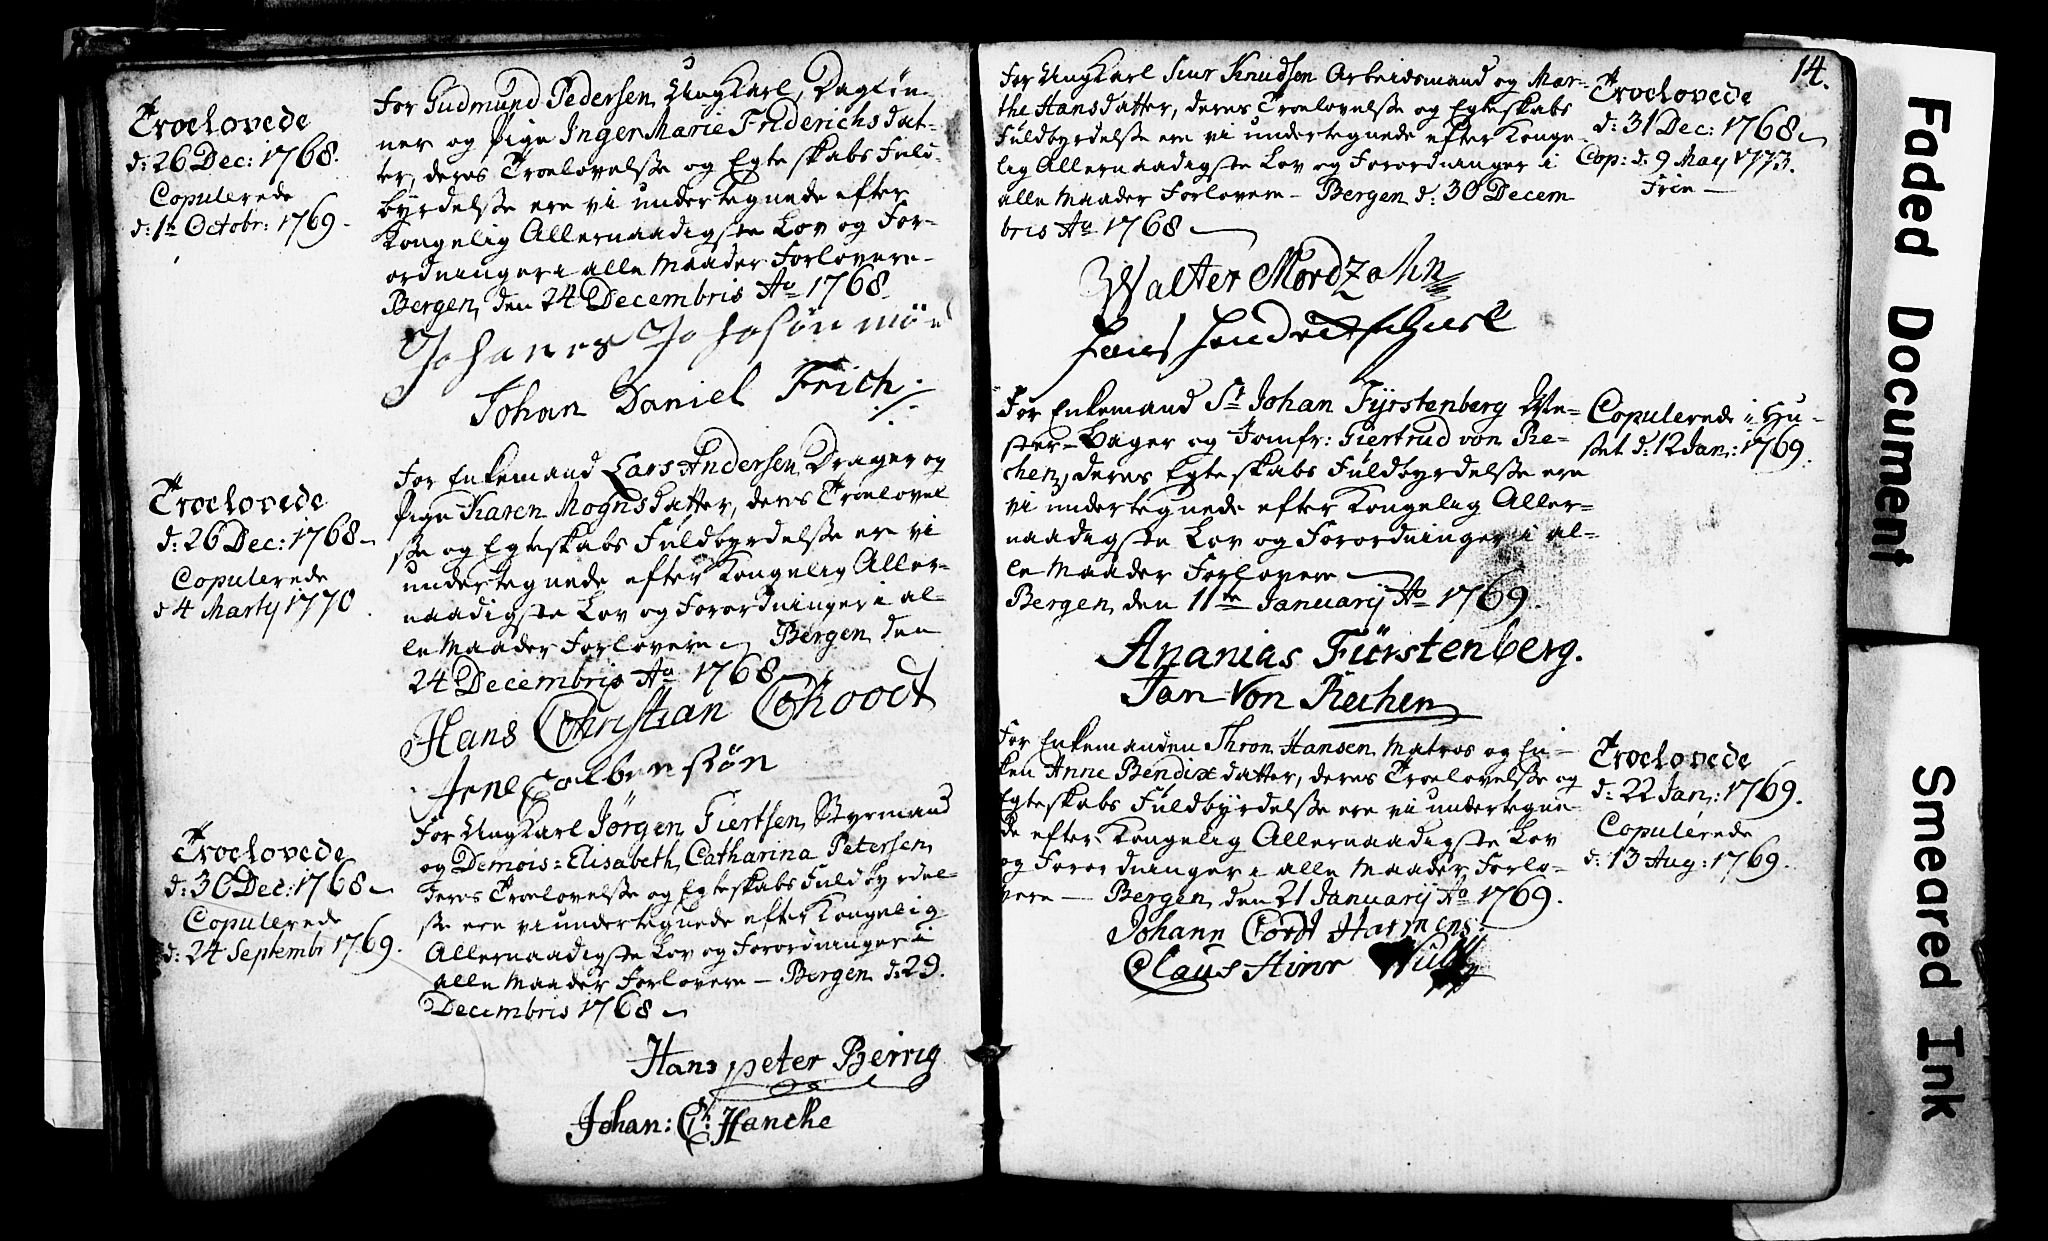 Troelovede
d: 26 Dec: 1768.
Copulerede
d: 1te Octobr: 1769.
For Gudmund Pedersen, UngKarl, Dagløn-
ner og Pige Inger Marie Friderichsdat-
ter, deres Troelovelse og Egteskabs Fuld-
byrdelse ere vi undertegnede efter
Kongelig Allernaadigste Lov og For-
ordninger i alle Maader Forlovere.
Bergen, den 24 Decembris Ao 1768.
Johan Daniel Frich.
Troelovede
d: 26 Dec: 1768
Copulerede
d 4 Marty 1770.
For Enkemand Lars Andersen, Drager og
Pige Karen Mognsdatter, deres Troelovel
sse og Egteskabs Fuldbyrdelsse ere vi
undertegnede efter Kongelig Aller-
naadigste Lov og Forordninger i al-
le Maader Forlovere Bergen den
24 Decembris Ao 1768
Hans Christian
Arne
Troelovede
d: 30 Dec: 1768
Copulerede
d: 24 Septembr 1769.
For UngKarl Jörgen Giertsen, Styrmand
og Demois: Elisabeth Catharina Petersen,
deres Troelovelsse og Egteskabs Fuldbyrdel-
sse ere vi undertegnede efter Kongelig
Allernaadigste Lov og Forordninger i
alle Maader Forlovere — Bergen d: 29.
Decembris 1768
Hans peter Berrig
Johan: Ch: Hancke
14.
For UngKarl Siur Knudsen Arbeidsmand og Mar-
the Hansdatter, deres Troelovelsse og Egteskabs
Fuldbyrdelsse ere vi undertegnede efter Konge-
lig Allernaadigste Lov og Forordninger i
alle Maader Forlovere — Bergen d: 30 Decem
bris Ao 1768
Troelovede
d: 31 Dec: 1768
Cop: d: 9 May 1773.
Frie —
Walter Mordzahn
Hans
For Enkemand Sr Johan Fyrstenberg
ster-Bager og Jomfr: Giertrud von Re-
chen, deres Egteskabs Fuldbyrdelsse ere
vi undertegnede efter Kongelig Aller-
naadigste Lov og Forordninger i al-
le Maader Forlovere
Bergen, den 11te January Ao 1769.
Copulerede i Hu-
set d: 12 Jan: 1769.
Ananias Fürstenberg.
Jan Von Rechen
For Enkemanden Thron Hansen, Matros og En-
ken Anne Bendixdatter, deres Troelovelsse og
Egteskabs Fuldbyrdelsse ere vi undertegne-
de efter Kongelig Allernaadigste Lov
og Forordninger i alle Maader Forlo-
vere — Bergen, den 21 January Ao 1769.
Troelovede
d: 22 Jan: 1769.
Copulerede
d: 13 Aug: 1769.
Johann Cordt Harmens
Claus Hinr
Faded Document
Smeared Ink